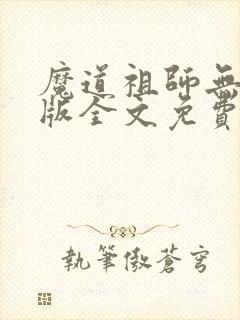 魔道祖師無
版全文免費
執筆傲蒼穹